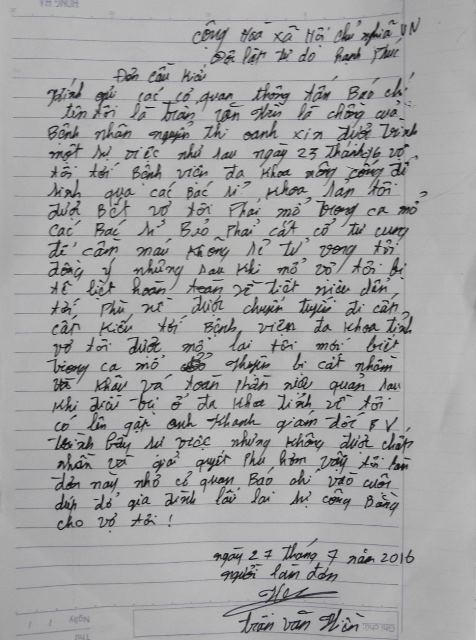 cộng Hoà xã Hội chủ nghĩa VN
Độc lập tự do hạnh Phúc
Đơn cầu Kiếu
Kính gửi các cơ quan thông tấn Báo chí
tên tôi là trần văn Hiền là chồng của
Bệnh nhân nguyễn thị oanh xin được trình
một sự việc như sau ngày 23 tháng 6 vợ
tôi tới Bệnh viện đa Khoa nông cống để
sinh qua các Bác sĩ Khoa sản tôi
được Biết vợ tôi Phải mổ trong ca mổ
các Bác sĩ Bảo Phải cắt cổ tử cung
để cầm máu không sẽ tử vong tôi
đồng ý nhưng sau khi mổ vợ tôi bị
tê liệt hoàn toàn về tiết niệu dẫn
tới Phù nề được chuyển tuyến đi cấp
cứu tới Bệnh viện đa Khoa tỉnh
vợ tôi được mổ lại tôi mới biết
trong ca mổ bị cắt nhầm
và khâu vá toàn Phần niệu quản sau
Khi điều trị ở đa Khoa tỉnh về tôi
có lên gặp anh Khanh giám đốc BV
trình bầy sự việc nhưng không được chấp
nhận và giải quyết Vậy tôi làm
đơn này nhờ cơ quan Báo chí vào cuộc
giúp đỡ gia đình lấy lại sự công Bằng
cho vợ tôi !
ngày 27 tháng 7 năm 2016
người làm đơn
trần văn Hiền
Ngày